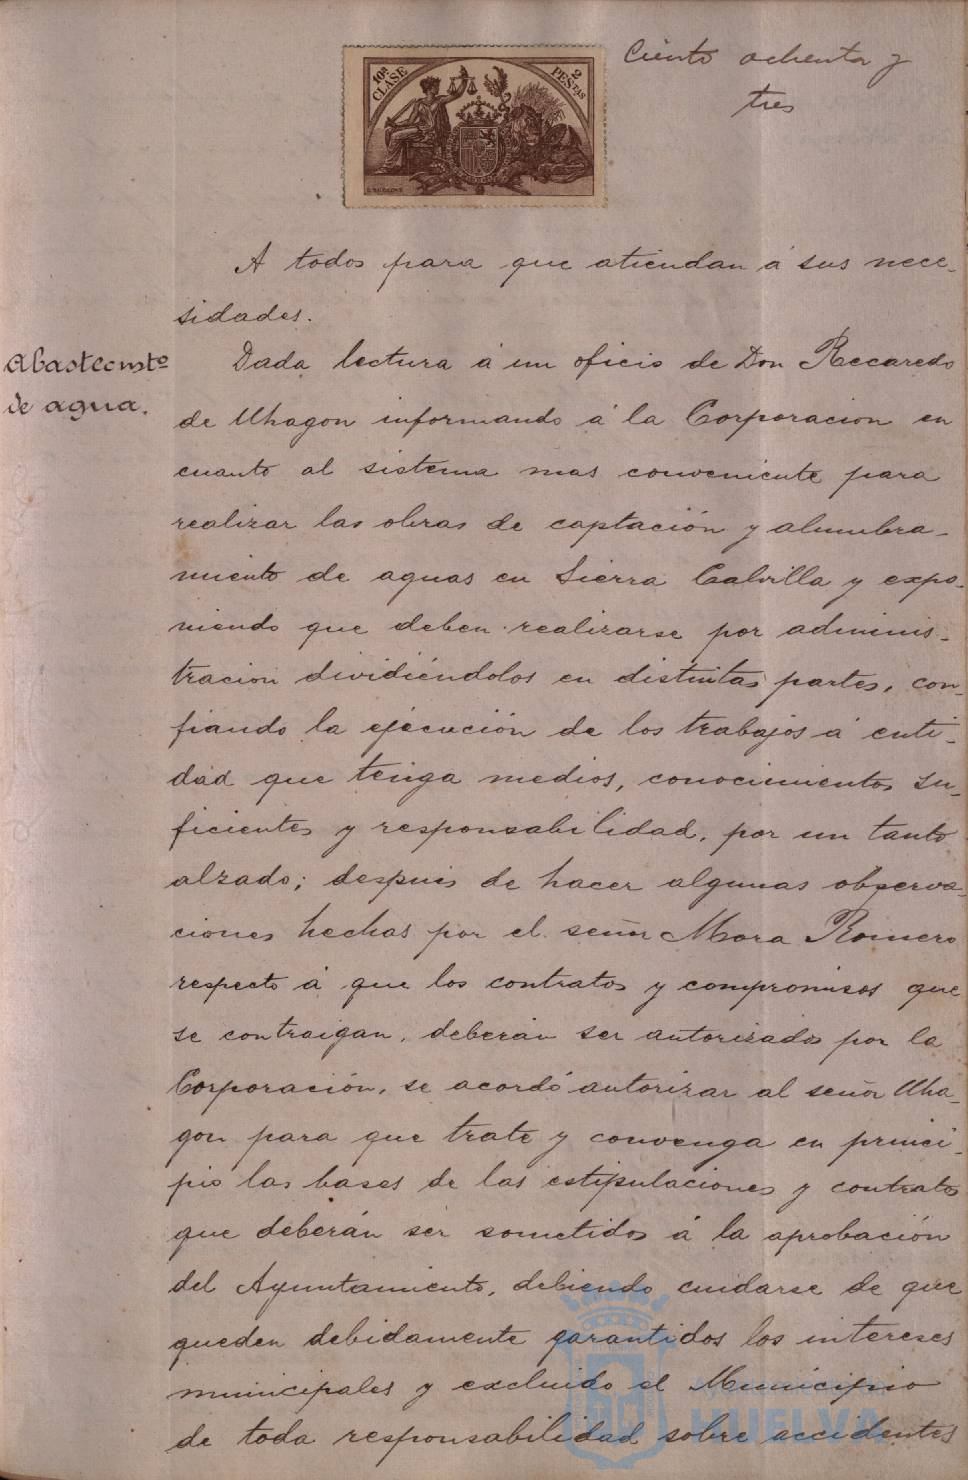 Ciento ochenta y
tres
10ª CLASE
2 PESTAS
A todos para que atiendan á sus nece-
sidades.
Abastecmtº
de agua.
Dada lectura á un oficio de Don Recaredo
de Uhagon informando á la Corporacion en
cuanto al sistema mas conveniente para
realizar las obras de captación y alumbra-
miento de aguas en Sierra Calvilla y expo-
niendo que deben realizarse por adminis-
tracion dividiéndolos en distintas partes, con-
fiando la ejecución de los trabajos á enti-
dad que tenga medios, conocimientos su-
ficientes y responsabilidad, por un tanto
alzado; despues de hacer algunas observa-
ciones hechas por el señor Mora Romero
respecto á que los contratos y compromisos que
se contraigan, deberán ser autorizados por la
Corporación, se acordó autorizar al señor Uha-
gon para que trate y convenga en princi-
pio las bases de las estipulaciones y contratos
que deberán ser sometidos á la aprobación
del Ayuntamiento, debiendo cuidarse de que
queden debidamente garantidos los intereses
municipales y excluido el Municipio
de toda responsabilidad sobre accidentes
Ayuntamiento de
HUELVA